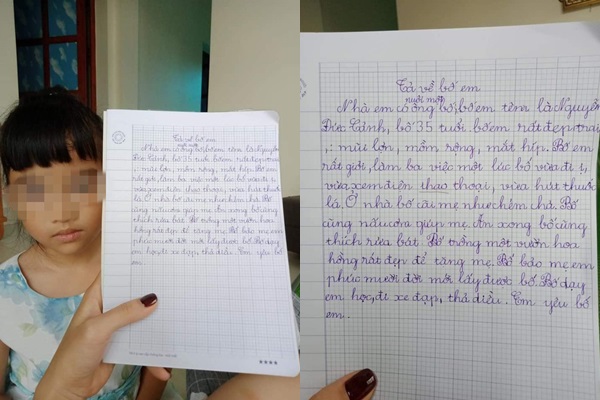 Tả về bố em
Nhà em có nuôi một ông bố, bố em tên là Nguyễn
Đức Cảnh, bố 35 tuổi bố em rất đẹp trai
,: mũi lớn, mồm rộng, mắt híp. Bố em
rất giỏi, làm ba việc một lúc bố vừa đi ỉ,
vừa xem điện thoạo thoại, vừa hút thuốc
lá. Ở nhà bố cãi mẹ như chém chả. Bố
cũng nấu cơm giúp mẹ. Ăn xong bố cũng
thích rửa bát. Bố trồng một vườn hoa
hồng rất đẹp để tặng mẹ. Bố bảo mẹ em
phúc mươi đời mới lấy được bố. Bố dạy
em học, đi xe đạp, thả diều. Em yêu bố
em.